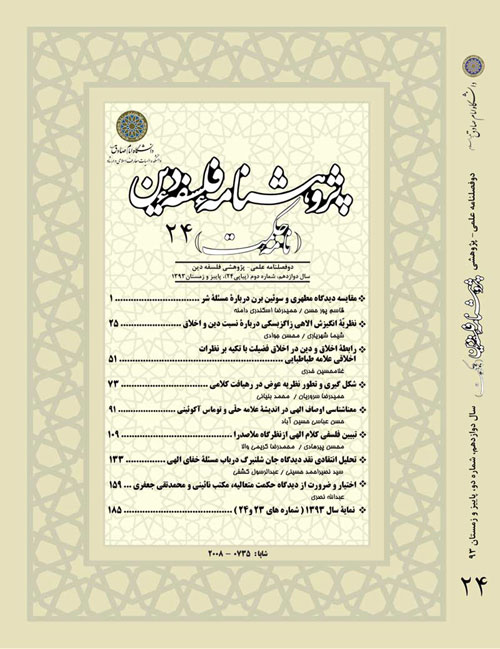 دانشگاه امام صادق
پژوهشنامه فلسفه دین
(نامه حکمت)
۲۴
دوفصلنامه علمی - پژوهشی فلسفه دین
سال دوازدهم، شماره دوم (پیاپی۲۴)، پاییز و زمستان ۱۳۹۳
مقایسه دیدگاه مطهری و سوئین برن دربارهٔ مسئلهٔ شر ........ ۱
قاسم پور حسن / حمیدرضا اسکندری دامنه
نظریهٔ انگیزش الاهی زاگزبسکی دربارهٔ نسبت دین و اخلاق ........ ۲۵
شیما شهریاری / محسن جوادی
رابطهٔ اخلاق و دین در اخلاق فضیلت با تکیه بر نظرات
اخلاقی علامه طباطبایی ........ ۵۱
غلامحسین خدری
شکل گیری و تطور نظریه عوض در رهیافت کلامی ........ ۷۳
حمیدرضا سروریان / محمد بنیانی
معناشناسی اوصاف الهی در اندیشهٔ علامه حلّی و توماس آکوئینی ........ ۹۱
حسن عباسی حسین آباد
تبیین فلسفی کلام الهی ازنظرگاه ملاصدرا ........ ۱۰۹
محسن پیرهادی / محمدرضا کریمی والا
تحلیل انتقادی نقد دیدگاه جان شلنبرگ درباب مسئلهٔ خفای الهی ........ ۱۳۳
سید نصیراحمد حسینی / عبدالرسول کشفی
اختیار و ضرورت از دیدگاه حکمت متعالیه، مکتب نائینی و محمدتقی جعفری ... ۱۵۹
عبدالله نصری
نمایهٔ سال ۱۳۹۳ ( شماره های ۲۳ و ۲۴ ) ........ ۱۸۵
شاپا: ۰۷۳۵ - ۲۰۰۸
دانشگاه امام صادق
دوفصلنامه علمی - پژوهشی
پژوهشنامه فلسفه دین
(نامه حکمت)
سال دوازدهم، شماره دو، پاییز و زمستان ۹۳
۲۴